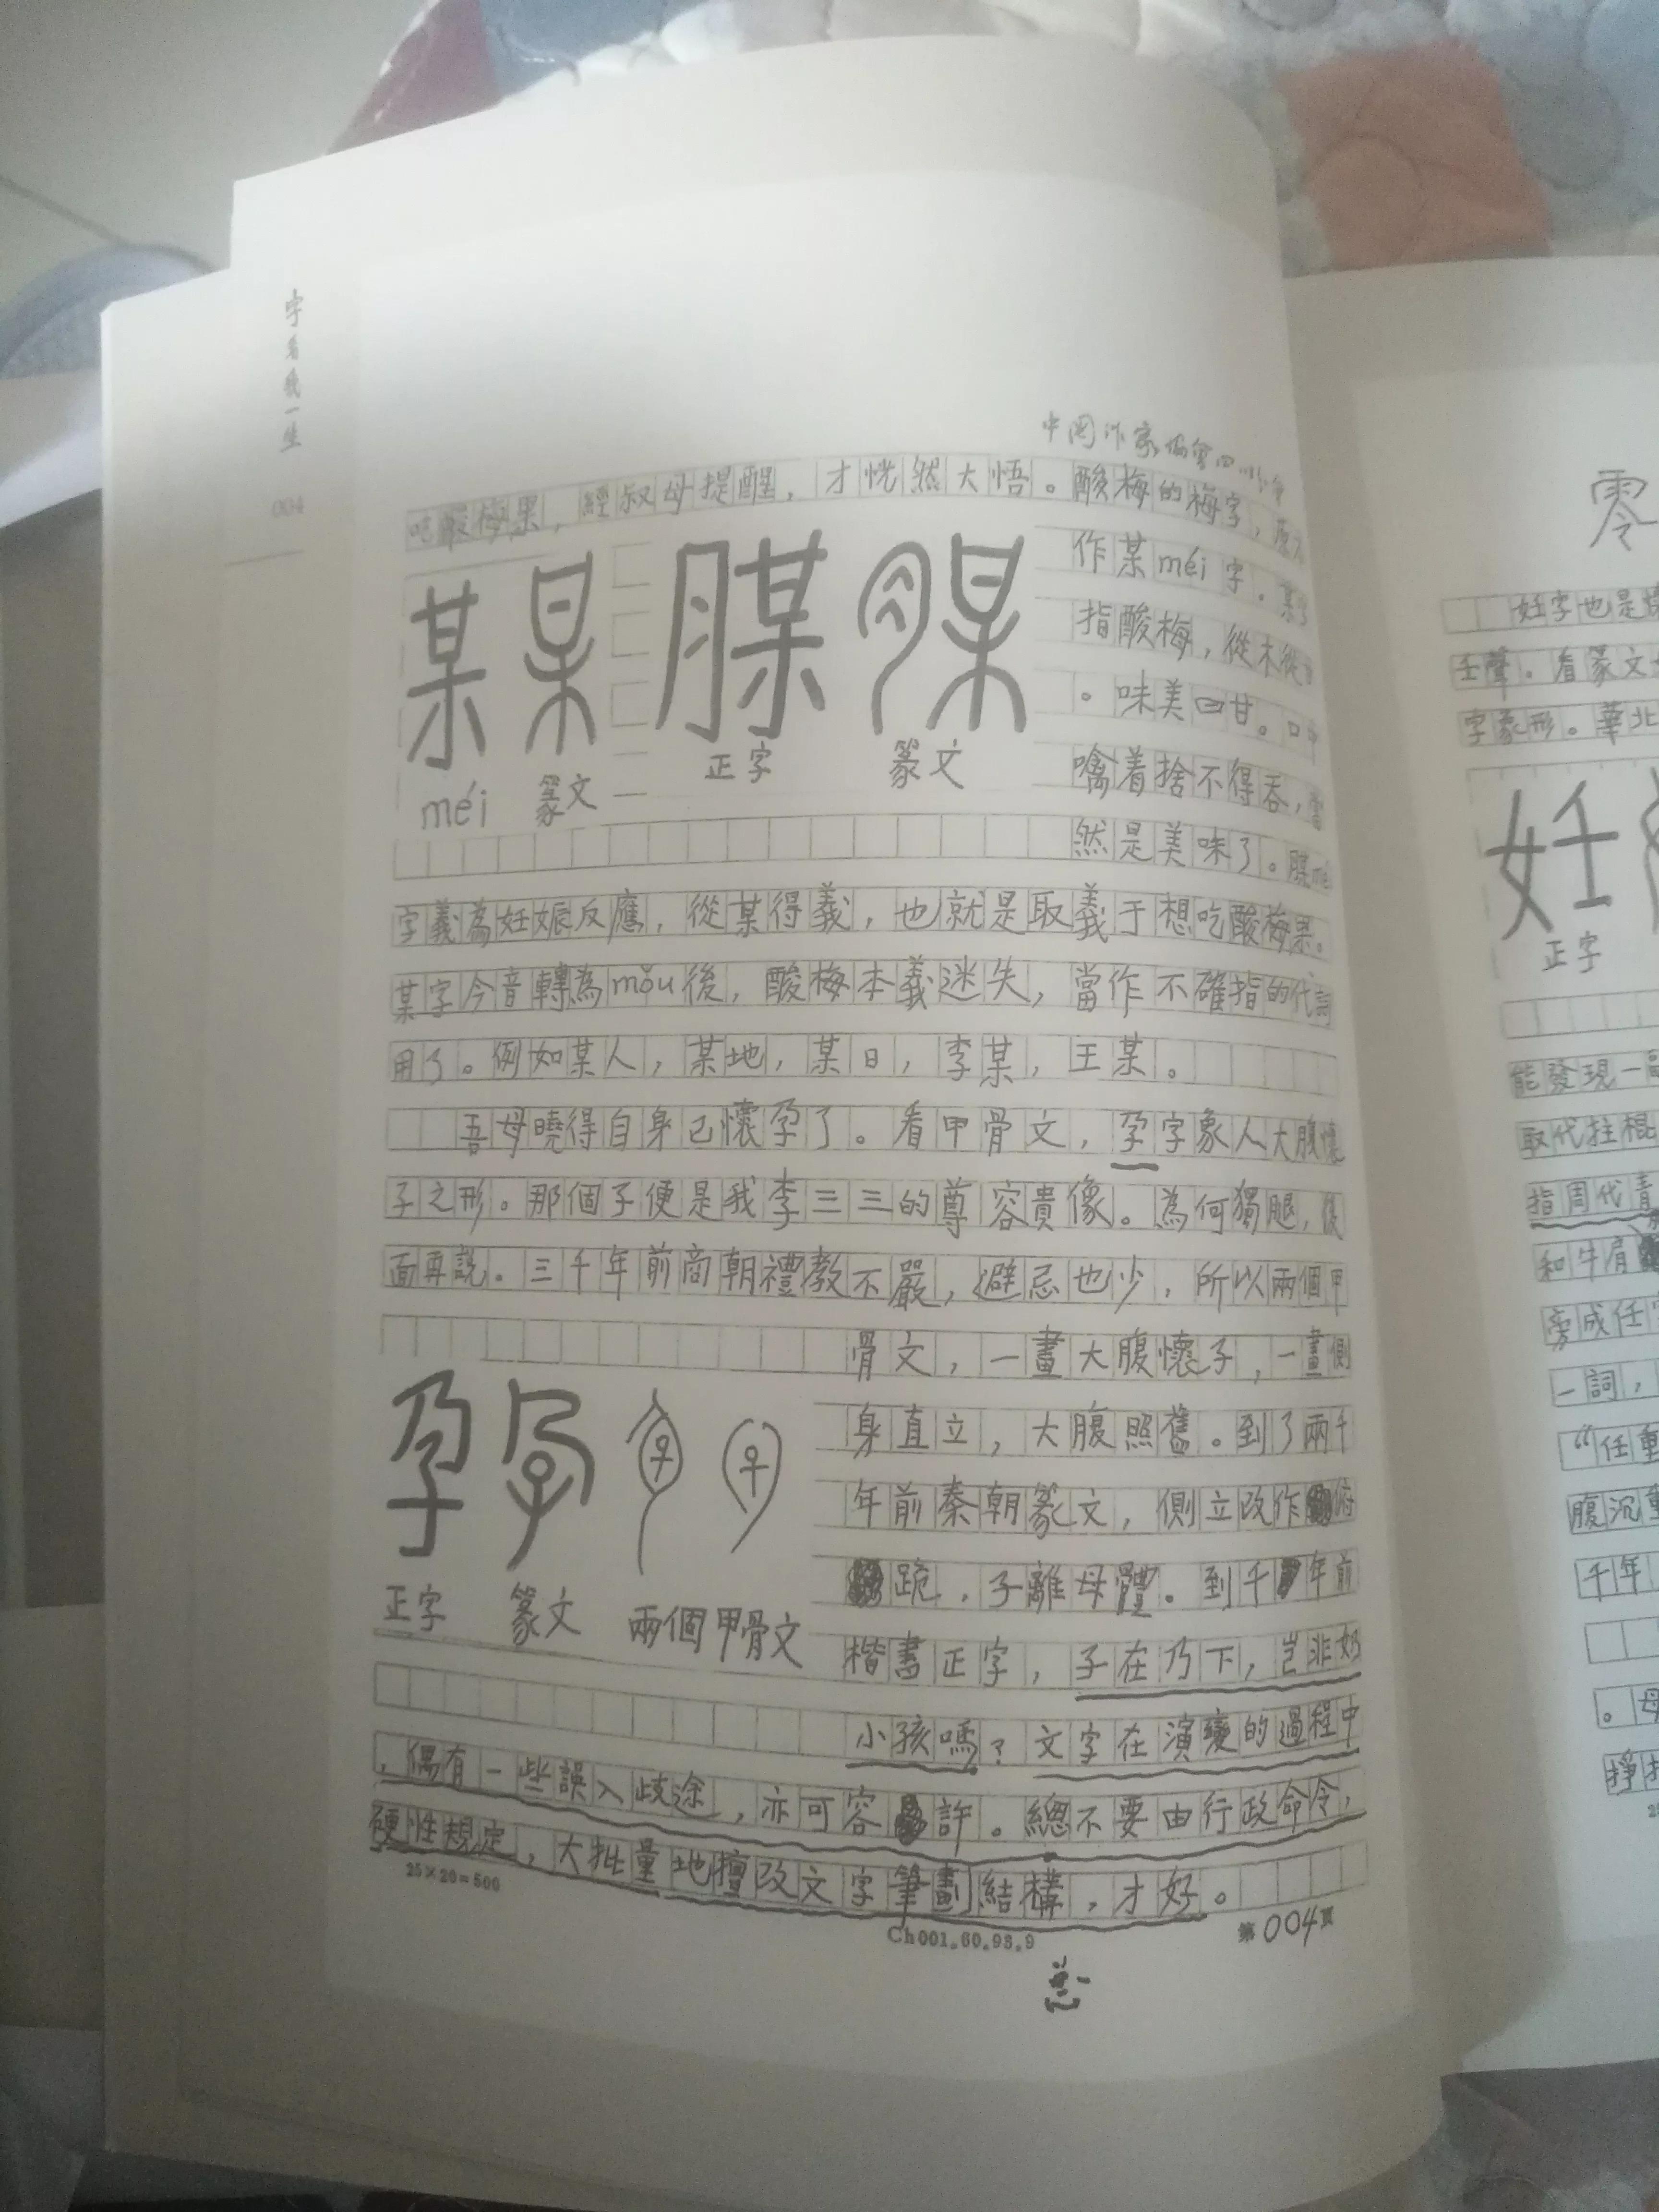 字看我一生
004
中国作家協會四川分會
吃酸梅果，經叔母提醒，才恍然大悟。酸梅的梅字，原
作某méi字。某字
指酸梅，從木從甘
。味美曰甘。口中
噙着捨不得吞，當
然是美味了。腜méi
某 某 腜 腜
méi 篆文 正字 篆文
字義為妊娠反應，從某得義，也就是取義于想吃酸梅果。
某字今音轉為mǒu後，酸梅本義迷失，當作不確指的代詞
用了。例如某人，某地，某日，李某，王某。
吾母曉得自身已懷孕了。看甲骨文，孕字象人大腹懷
子之形。那個子便是我李三三的尊容貴像。為何獨腿，後
面再説。三千年前商朝禮教不嚴，避忌也少，所以兩個甲
骨文，一畫大腹懷子，一畫側
身直立，大腹照舊。到了兩千
年前秦朝篆文，側立改作俯
跪，子離母體。到千年前
楷書正字，子在乃下，豈非奶
小孩嗎？文字在演變的過程中
孕 孕
正字 篆文 兩個甲骨文
，偶有一些誤入歧途，亦可容許。總不要由行政命令，
硬性規定，大批量地擅改文字筆劃結構，才好。
25×20=500
Ch001.60.93.9
第004頁
零
妊字也是
壬聲。看篆文
字象形。華北
妊
正字
能發現一
取代拄棍
指周代青
和牛肩
旁成任
一詞，
“任重
腹沉重
千年
。母
掙扎